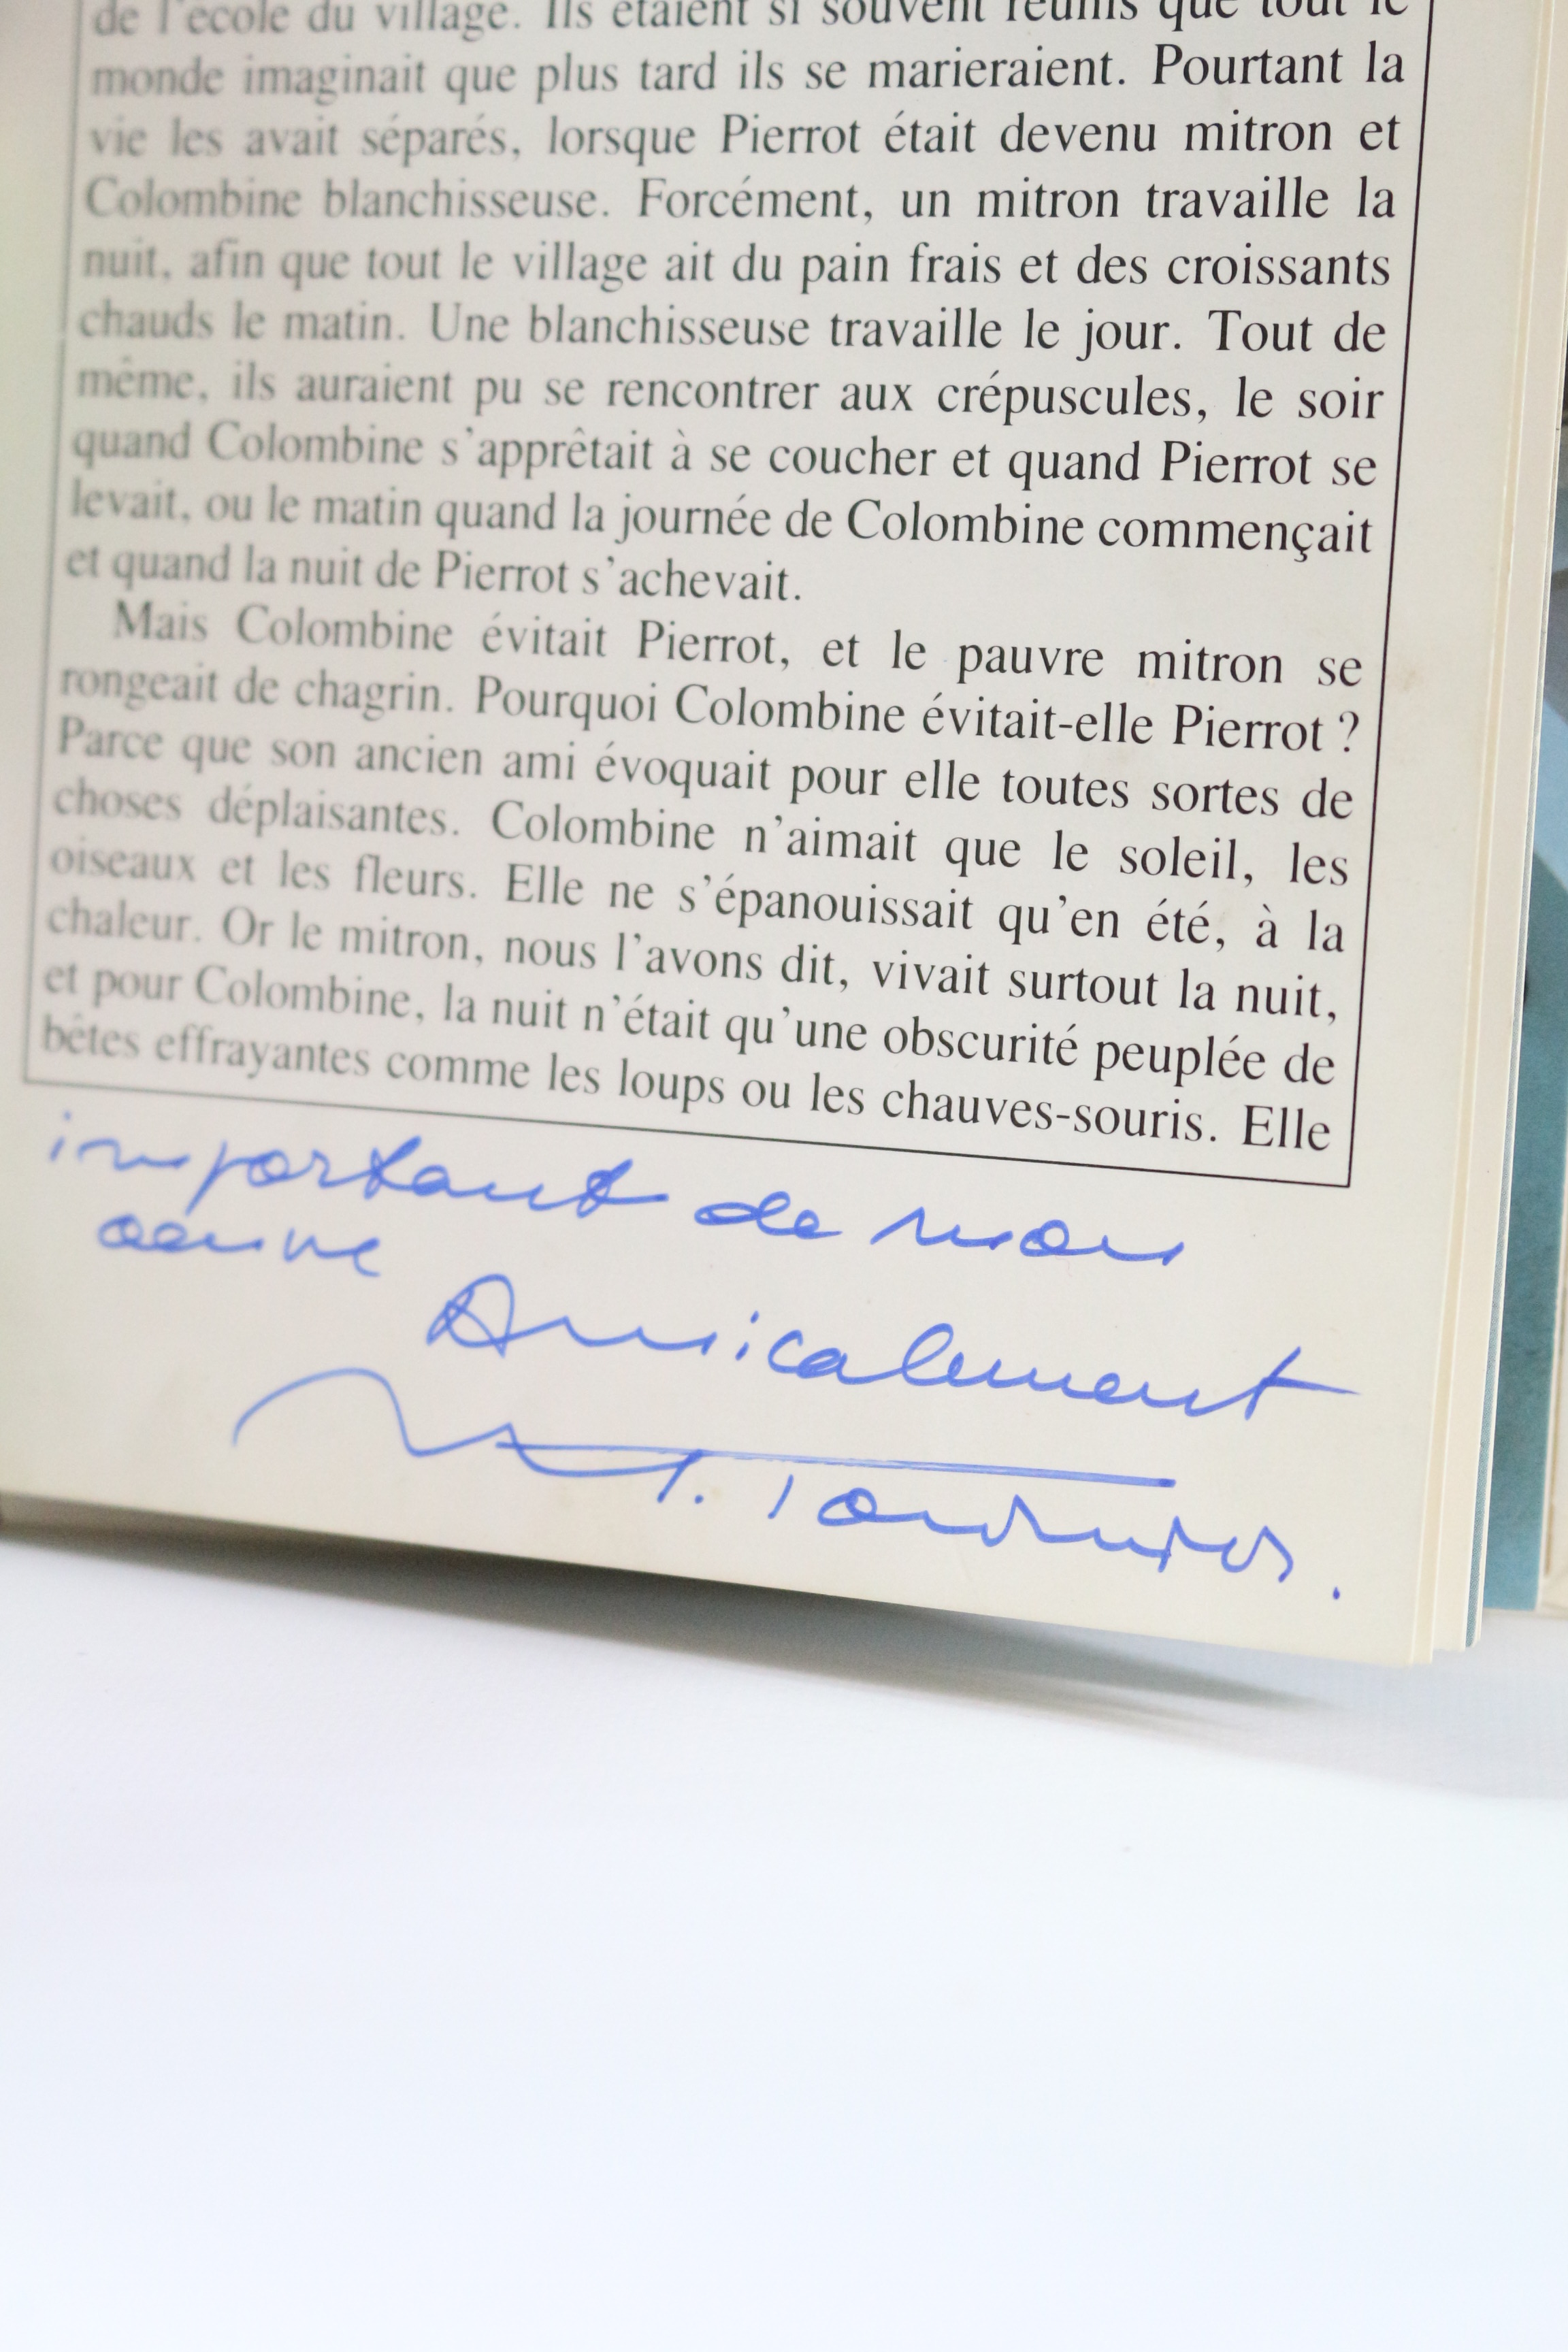 de l'école du village. Ils étaient si souvent réunis que tout le
monde imaginait que plus tard ils se marieraient. Pourtant la
vie les avait séparés, lorsque Pierrot était devenu mitron et
Colombine blanchisseuse. Forcément, un mitron travaille la
nuit, afin que tout le village ait du pain frais et des croissants
chauds le matin. Une blanchisseuse travaille le jour. Tout de
même, ils auraient pu se rencontrer aux crépuscules, le soir
quand Colombine s'apprêtait à se coucher et quand Pierrot se
levait, ou le matin quand la journée de Colombine commençait
et quand la nuit de Pierrot s'achevait.
Mais Colombine évitait Pierrot, et le pauvre mitron se
rongeait de chagrin. Pourquoi Colombine évitait-elle Pierrot ?
Parce que son ancien ami évoquait pour elle toutes sortes de
choses déplaisantes. Colombine n'aimait que le soleil, les
oiseaux et les fleurs. Elle ne s'épanouissait qu'en été, à la
chaleur. Or le mitron, nous l'avons dit, vivait surtout la nuit,
et pour Colombine, la nuit n'était qu'une obscurité peuplée de
bêtes effrayantes comme les loups ou les chauves-souris. Elle
important de mon
oeuvre
Amicalement
M. Tournier.